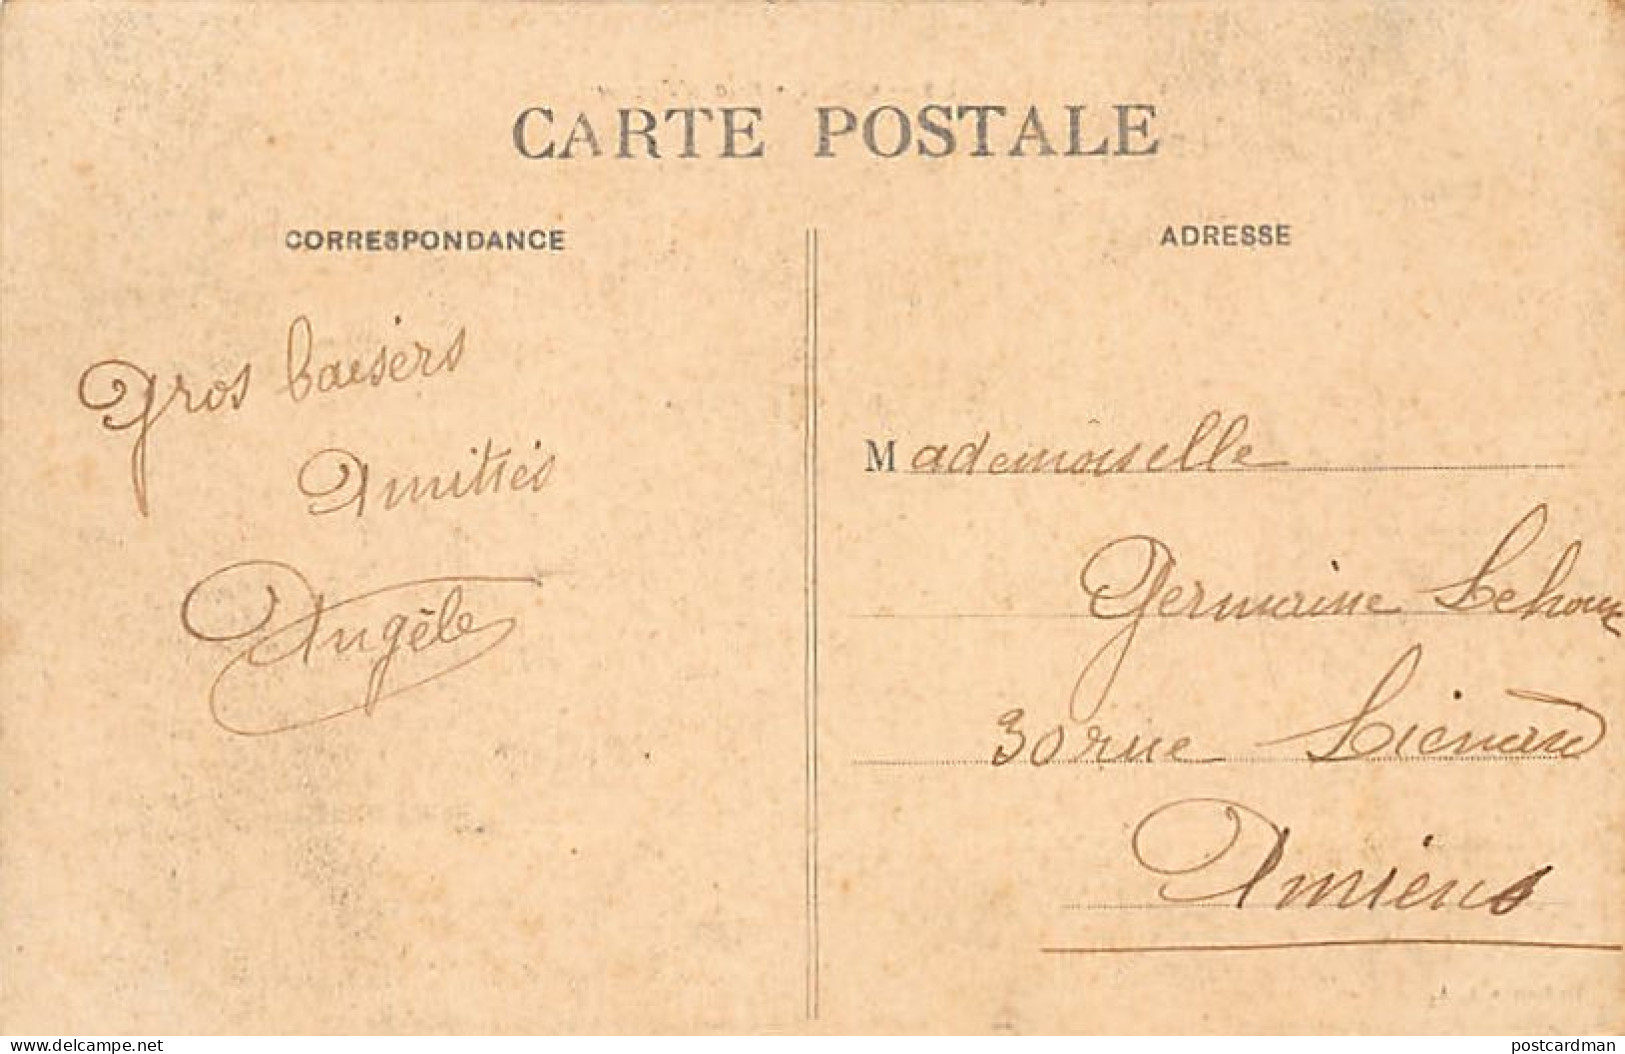 CARTE POSTALE
CORRESPONDANCE
Gros baisers
Amitiés
Angèle
ADRESSE
Mademoiselle
Germaine
30 rue Liénard
Amiens
www.delcampe.net
postcardman